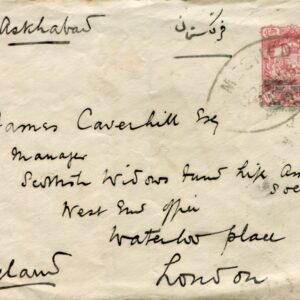 Askhabad
James Caverhill Esq
Manager
Scottish Widows Fund Life Ass
Soc
West End Office
Waterloo place
London
gland